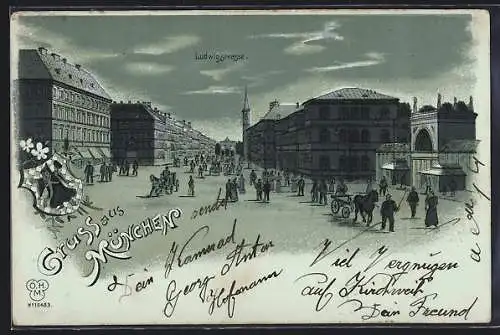 Ludwigstrasse.
Gruss aus
München
sendet
Dein Kamerad
Georg Anton
Hofmann
Viel Vergnügen
auf Kirchweih
Dein Freund
O.
H.
M.